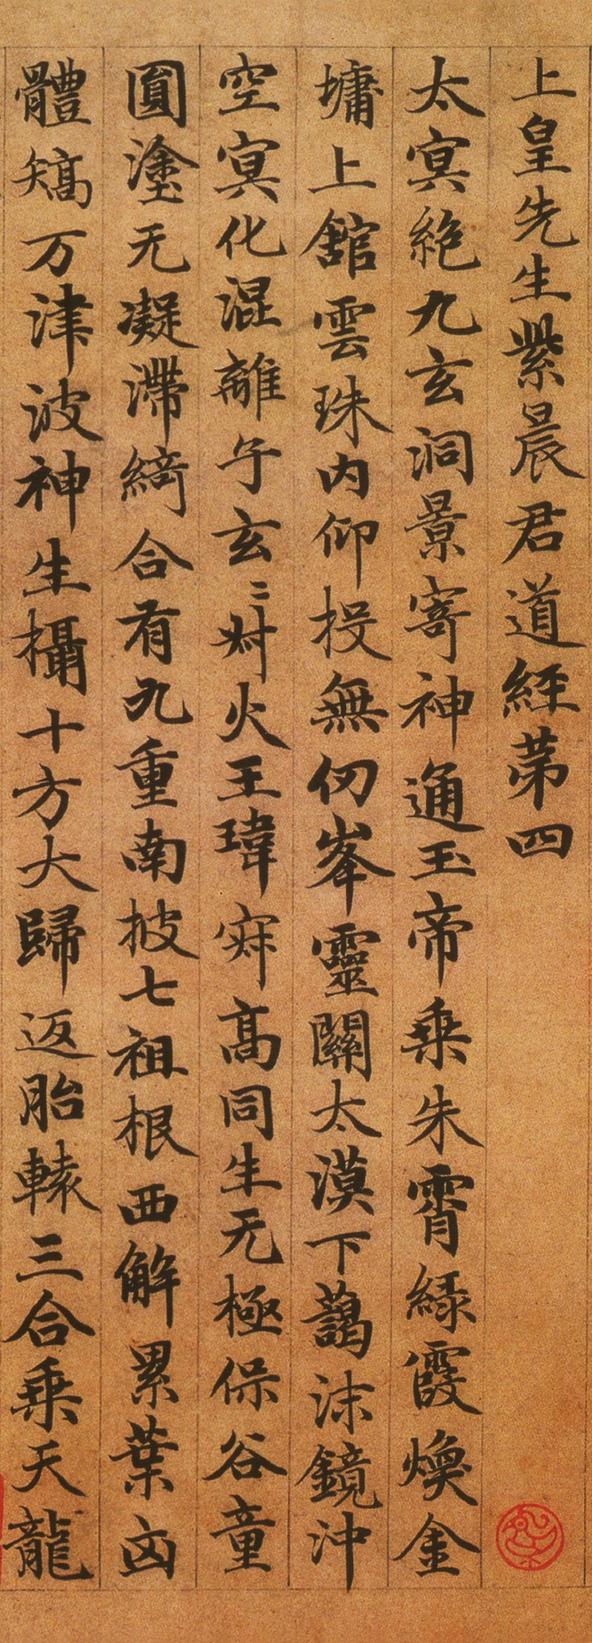 上皇先生紫晨君道經苐四
太冥絶九玄洞景寄神通玉帝乗朱霄緑霞煥金
墉上館雲珠内仰投無刃峯靈關太漠下藹沫鏡沖
空冥化混離子玄〻對火王瑋寂高同生无極保谷童
圓塗无凝滯綺合有九重南披七祖根西解累葉凶
體矯万津波神生攝十方大歸返胎轅三合乗天龍